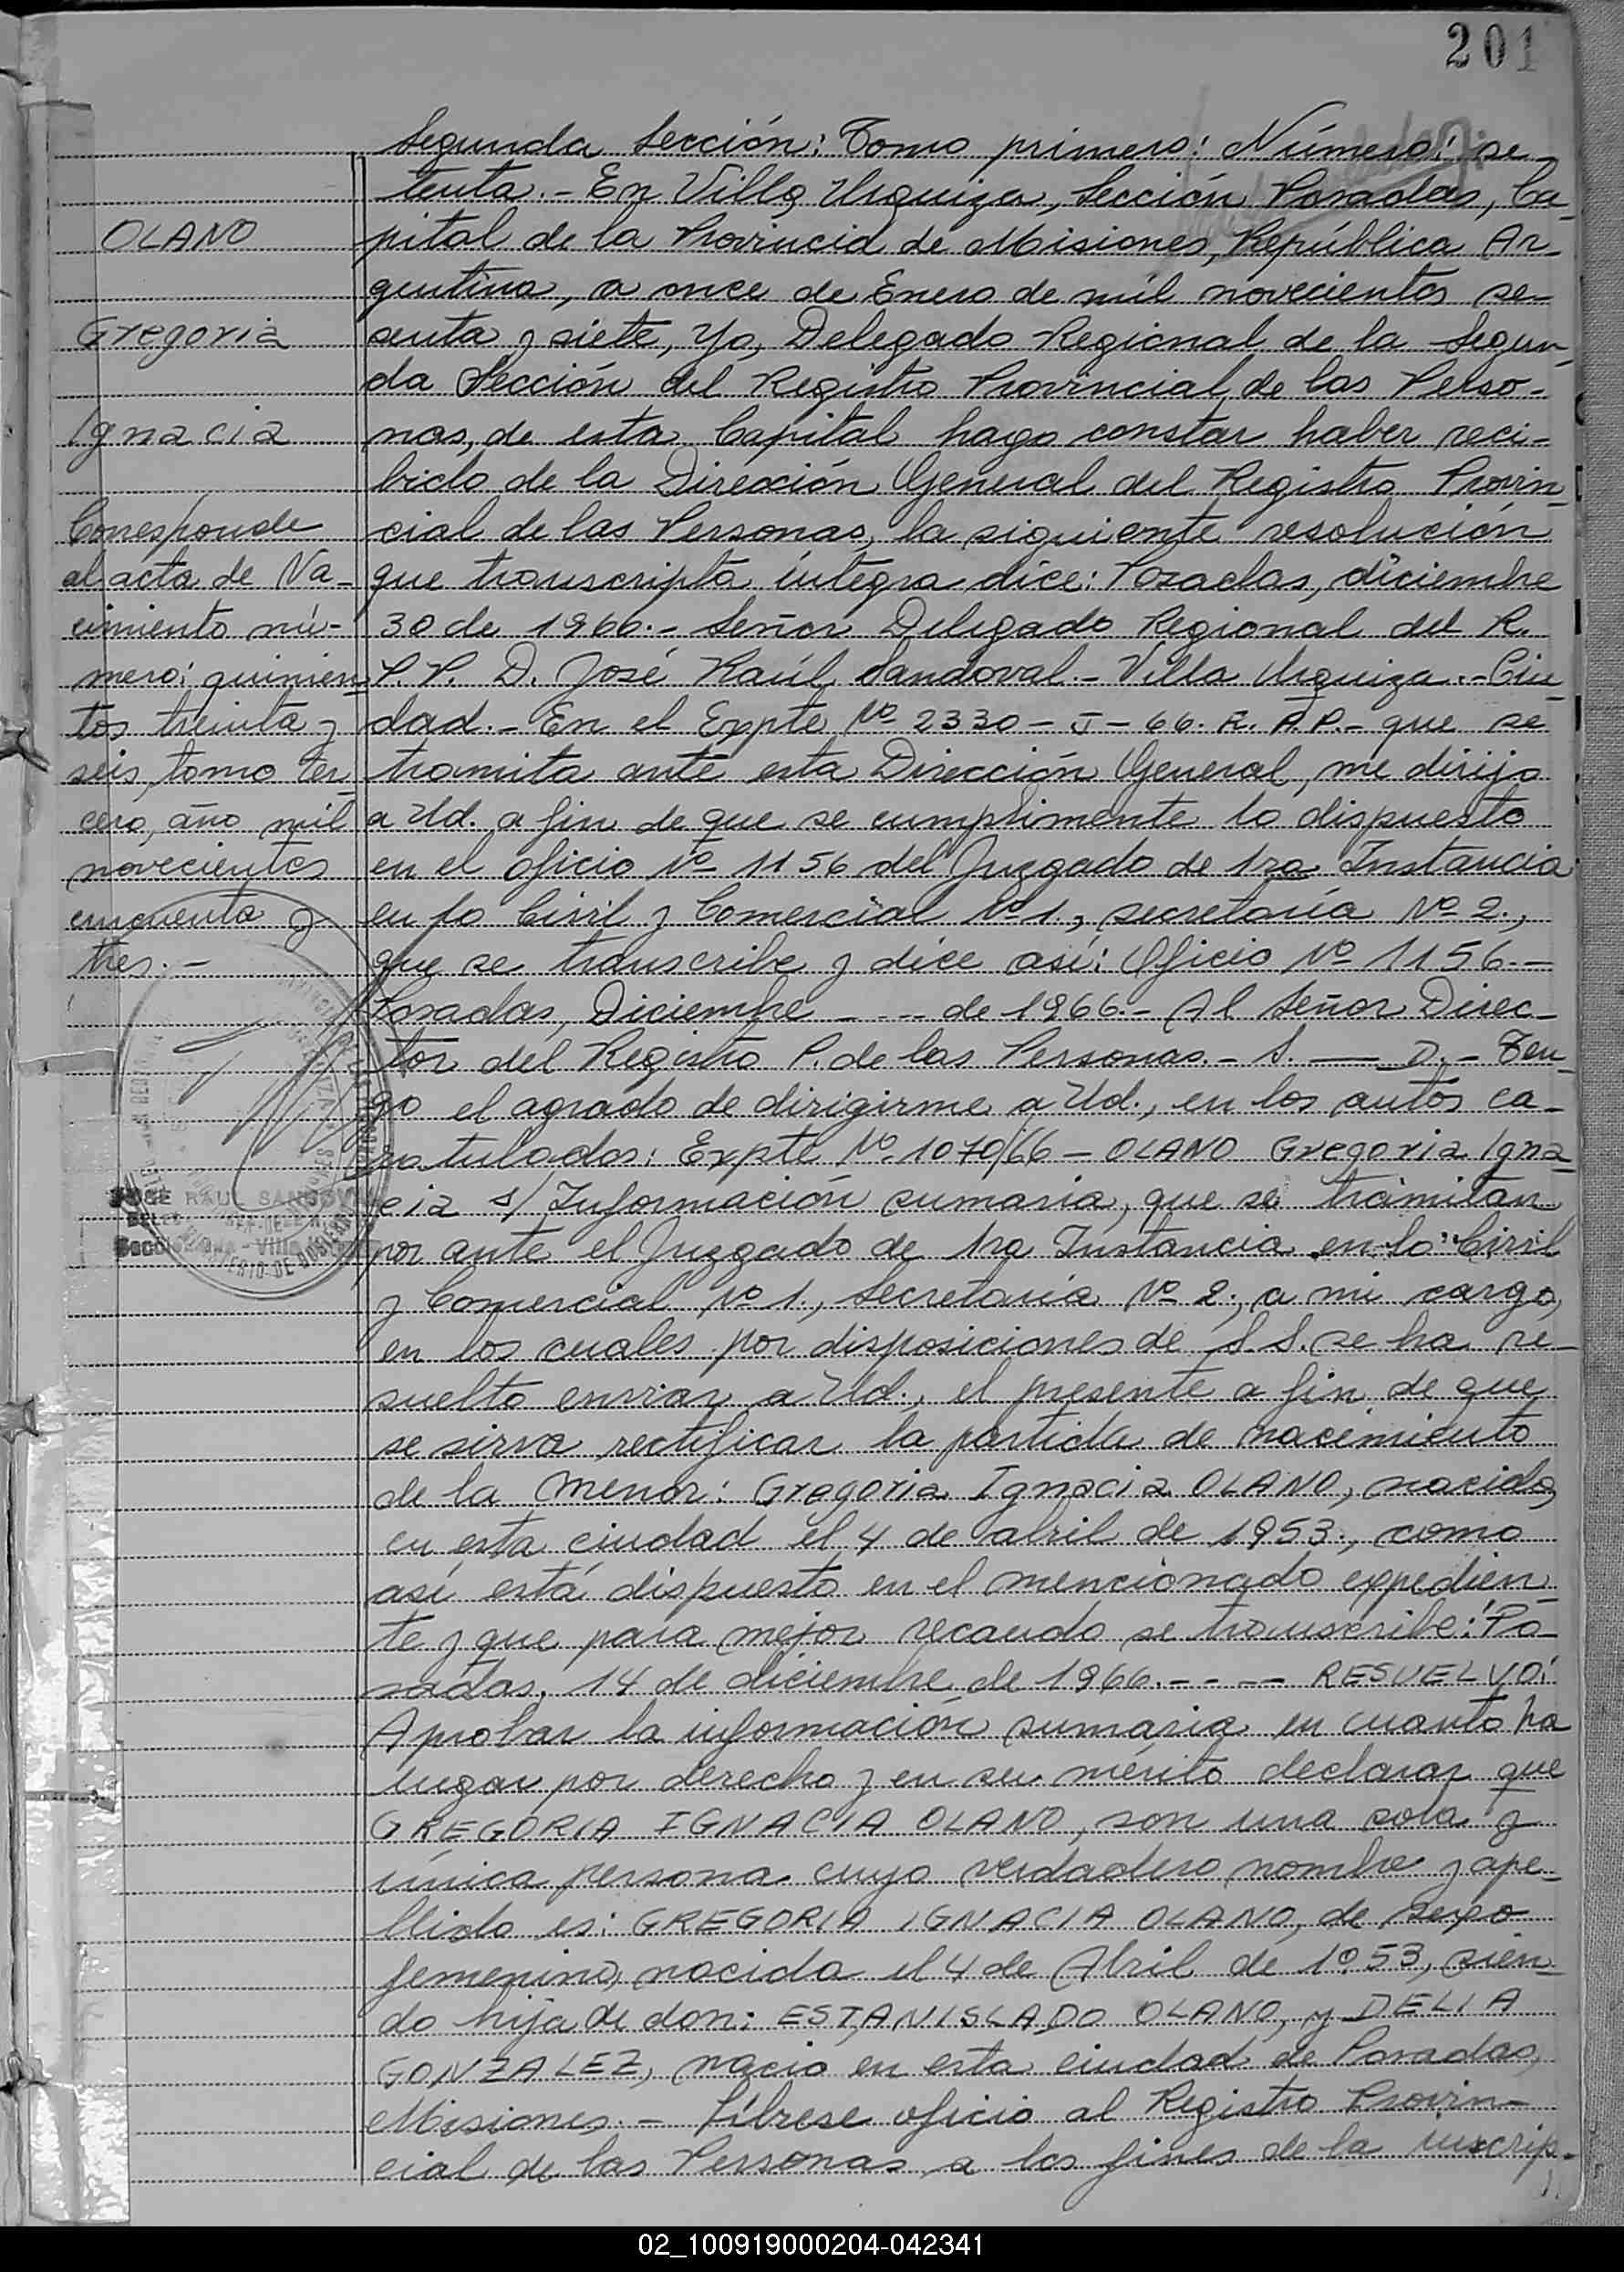 201
OLANO
Gregoria
Ignacia
Corresponde
al acta de Na-
cimiento nú-
mero: quinien-
tos treinta y
seis, tomo ter
cero, año mil
novecientos
cincuenta y
tres.-
JOSE RAUL SANDOV
Segunda Sección: Tomo primero: Número: se-
tenta.- En Villa Urquiza, Sección Posadas, Ca-
pital de la Provincia de Misiones, República Ar-
gentina, a once de Enero de mil novecientos se-
senta y siete, Yo, Delegado Regional de la Segun-
da Sección del Registro Provincial de las Perso-
nas, de esta Capital hago constar haber reci-
bido de la Dirección General del Registro Provin-
cial de las Personas, la siguiente resolución
que transcripta íntegra dice: Posadas, diciembre
30 de 1966.- Señor Delegado Regional del R.
P.P. D. José Raúl Sandoval.- Villa Urquiza.- Ciu
dad.- En el Expte Nº 2330-J-66. R. A.P.- que se
tramita ante esta Dirección General, me dirijo
a Ud. a fin de que se cumplimente lo dispuesto
en el oficio Nº 1156 del Juzgado de 1ra Instancia
en lo Civil y Comercial Nº 1., secretaría Nº 2.,
que se transcribe y dice así: Oficio Nº 1156.-
Posadas, Diciembre - - - de 1966.- Al Señor Direc-
tor del Registro P. de las Personas.- S. — D.- Ten-
go el agrado de dirigirme a Ud., en los autos ca-
ratulados: Expte Nº. 1070/66 - OLANO Gregoria Igna-
cia s/ Información sumaria, que se tramitan
por ante el Juzgado de 1ra Instancia en lo Civil
y Comercial Nº 1., Secretaría Nº 2., a mi cargo,
en los cuales por disposiciones de S.S. se ha re-
suelto enviar a Ud., el presente a fin de que
se sirva rectificar la partida de nacimiento
de la menor: Gregoria Ignacia OLANO, nacida
en esta ciudad el 4 de abril de 1953., como
así está dispuesto en el mencionado expedien-
te y que para mejor recaudo se transcribe: "Po-
sadas, 14 de diciembre de 1966.- - - - RESUELVO:
Aprobar la información sumaria en cuanto ha
lugar por derecho y en su mérito declarar que
GREGORIA IGNACIA OLANO, son una sola y
única persona cuyo verdadero nombre y ape-
llido es: GREGORIA IGNACIA OLANO, de sexo
femenino, nacida el 4 de Abril de 1953, sien-
do hija de don: ESTANISLADO OLANO, y DELIA
GONZALEZ, nació en esta ciudad de Posadas,
Misiones.- Líbrese oficio al Registro Provin-
cial de las Personas a los fines de la inscrip-
02_100919000204-042341